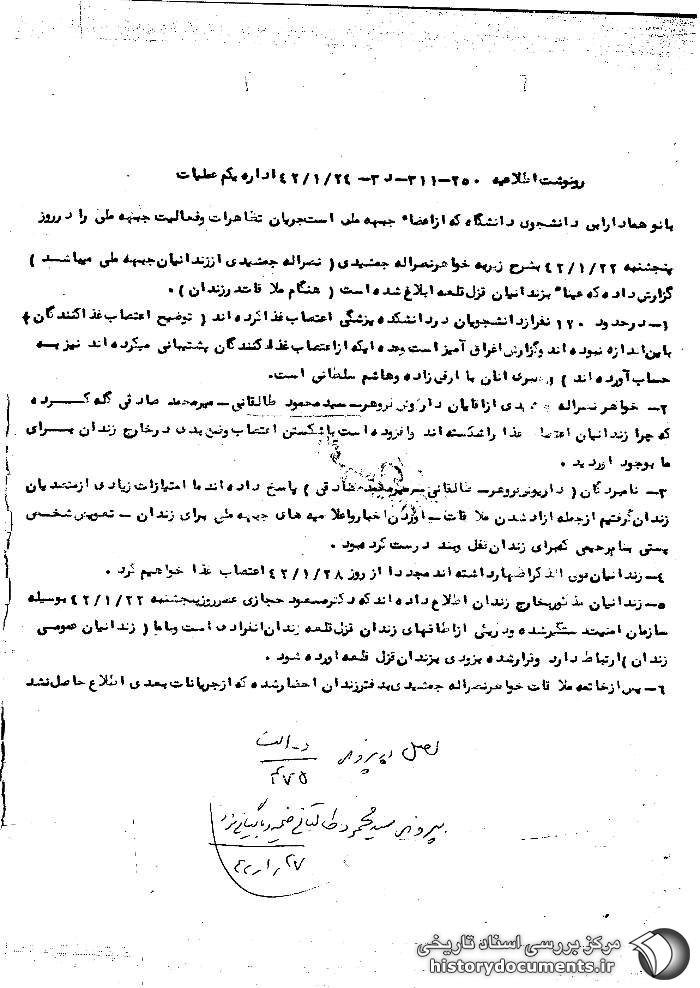 رونوشت اطلاعیه ۲۵۰-۳۱۱-د۳-۴۲/۱/۲۴ اداره یکم عملیات
بانو همادارابی دانشجوی دانشگاه که ازاعضاء جبهه ملی است جریان تظاهرات وفعالیت جبهه ملی را درروز
پنجشنبه ۴۲/۱/۲۲ بشرح زیر به خواهرنصراله جمشیدی ( نصراله جمشیدی اززندانیان جبهه ملی میباشد )
گزارش داده که عیناً بزندانیان قزل قلعه ابلاغ شده است ( هنگام ملاقات درزندان ) .
۱- درحدود ۱۲۰ نفرازدانشجویان دردانشکده پزشکی اعتصاب غذا کرده اند ( توضیح اعتصاب غذاکنندگان
باین اندازه نبوده اند وگزارش اغراق آمیز است وعده ایکه ازاعتصاب غذا کنندگان پشتیبانی میکرده اند نیز به
حساب آورده اند ) و رهبری آنان با ارفع زاده وهاشم سلطانی است.
۲- خواهر نصراله جمشیدی ازآقایان داریوش فروهر- سیدمحمود طالقانی - میرمحمد صادقی گله کرده
که چرا زندانیان اعتصاب غذا راشکسته اند وافزوده است باشکستن اعتصاب وضع بدی درخارج زندان برای
ما بوجود آوردید .
۳- نامبردگان ( داریوش فروهر- طالقانی - میرمحمد صادقی ) پاسخ داده اند ما امتیازات زیادی ازمتصدیان
زندان گرفتیم ازجمله آزاد شدن ملاقات - آوردن اخبارواعلامیه های جبهه ملی برای زندان - تعویض شخص
پستی بنام رحیمی که برای زندان قفل وبند درست کرده بود .
۴- زندانیان فوق الذکر اظهارداشته اند مجدداً از روز ۴۲/۱/۲۸ اعتصاب غذا خواهیم کرد .
۵- زندانیان مذکور بخارج زندان اطلاع داده اند که دکترمسعود حجازی عصرروز پنجشنبه ۴۲/۱/۲۲ بوسیله
سازمان امنیت دستگیرشده ودریکی ازاطاقهای زندان قزل قلعه زندان انفرادی است وباما ( زندانیان عمومی
زندان ) ارتباط دارد وقرارشده بزودی بزندان قزل قلعه آورده شود .
۶- پس ازخاتمه ملاقات خواهرنصراله جمشیدی بدفترزندان احضارشده که ازجریانات بعدی اطلاع حاصل نشد
اصل در پرونده د-الف
۴۷۵
پرونده سید محمود طالقانی ضمیمه و بایگانی
۴۲/۱/۲۷
مرکز بررسی اسناد تاریخی
historydocuments.ir